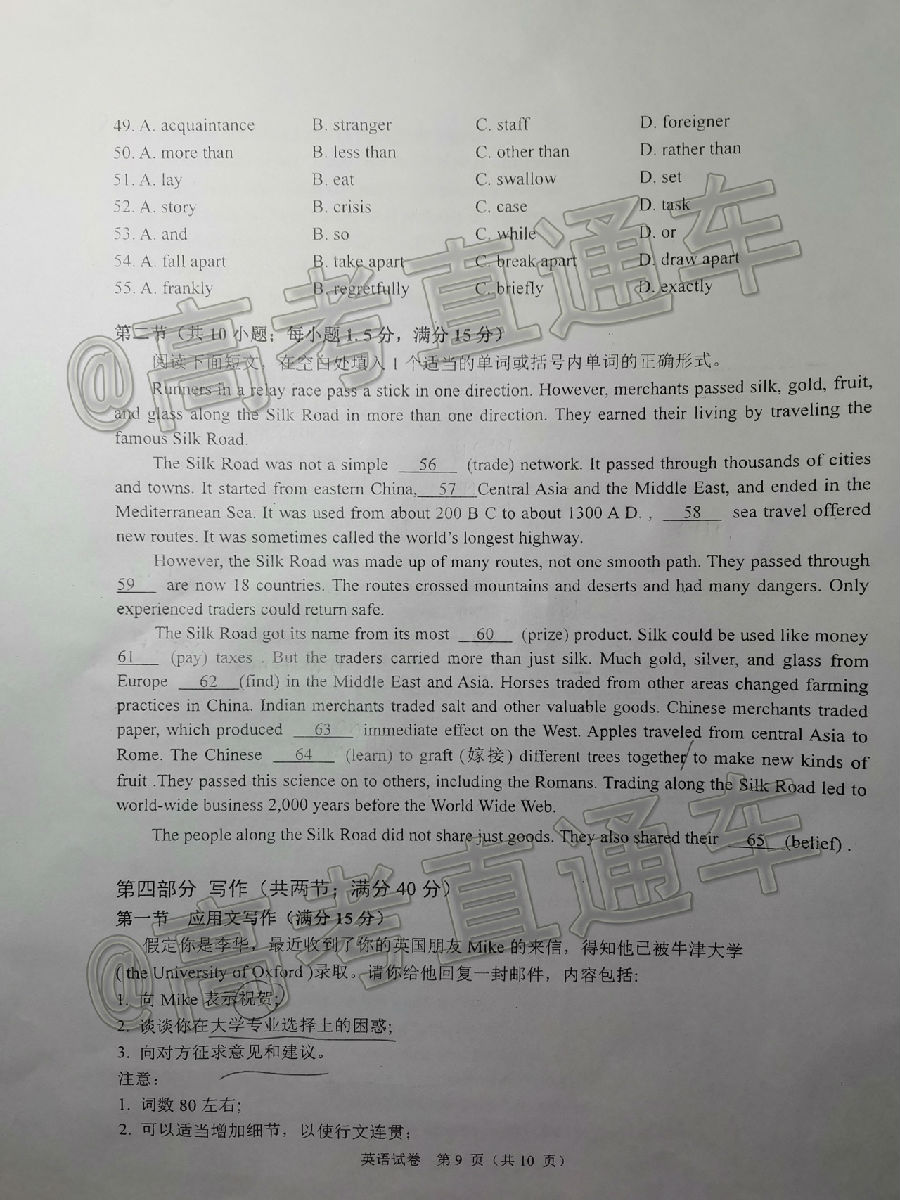 49. A. acquaintance B. stranger C. staff D. foreigner
50. A. more than B. less than C. other than D. rather than
51. A. lay B. eat C. swallow D. set
52. A. story B. crisis C. case D. task
53. A. and B. so C. while D. or
54. A. fall apart B. take apart C. break apart D. draw apart
55. A. frankly B. regretfully C. briefly D. exactly
第二节（共 10 小题；每小题 1.5 分，满分 15 分）
阅读下面短文，在空白处填入 1 个适当的单词或括号内单词的正确形式。
Runners in a relay race pass a stick in one direction. However, merchants passed silk, gold, fruit,
and glass along the Silk Road in more than one direction. They earned their living by traveling the
famous Silk Road.
The Silk Road was not a simple 56 (trade) network. It passed through thousands of cities
and towns. It started from eastern China, 57 Central Asia and the Middle East, and ended in the
Mediterranean Sea. It was used from about 200 B C to about 1300 A D. , 58 sea travel offered
new routes. It was sometimes called the world's longest highway.
However, the Silk Road was made up of many routes, not one smooth path. They passed through
59 are now 18 countries. The routes crossed mountains and deserts and had many dangers. Only
experienced traders could return safe.
The Silk Road got its name from its most 60 (prize) product. Silk could be used like money
61 (pay) taxes . But the traders carried more than just silk. Much gold, silver, and glass from
Europe 62 (find) in the Middle East and Asia. Horses traded from other areas changed farming
practices in China. Indian merchants traded salt and other valuable goods. Chinese merchants traded
paper, which produced 63 immediate effect on the West. Apples traveled from central Asia to
Rome. The Chinese 64 (learn) to graft (嫁接) different trees together to make new kinds of
fruit .They passed this science on to others, including the Romans. Trading along the Silk Road led to
world-wide business 2,000 years before the World Wide Web.
The people along the Silk Road did not share just goods. They also shared their 65 (belief) .
第四部分 写作（共两节；满分 40 分）
第一节 应用文写作（满分 15 分）
假定你是李华，最近收到了你的英国朋友 Mike 的来信，得知他已被牛津大学
( the University of Oxford )录取。请你给他回复一封邮件，内容包括：
1. 向 Mike 表示祝贺;
2. 谈谈你在大学专业选择上的困惑;
3. 向对方征求意见和建议。
注意：
1. 词数 80 左右;
2. 可以适当增加细节，以使行文连贯;
英语试卷 第 9 页（共 10 页）
@高考直通车
@高考直通车